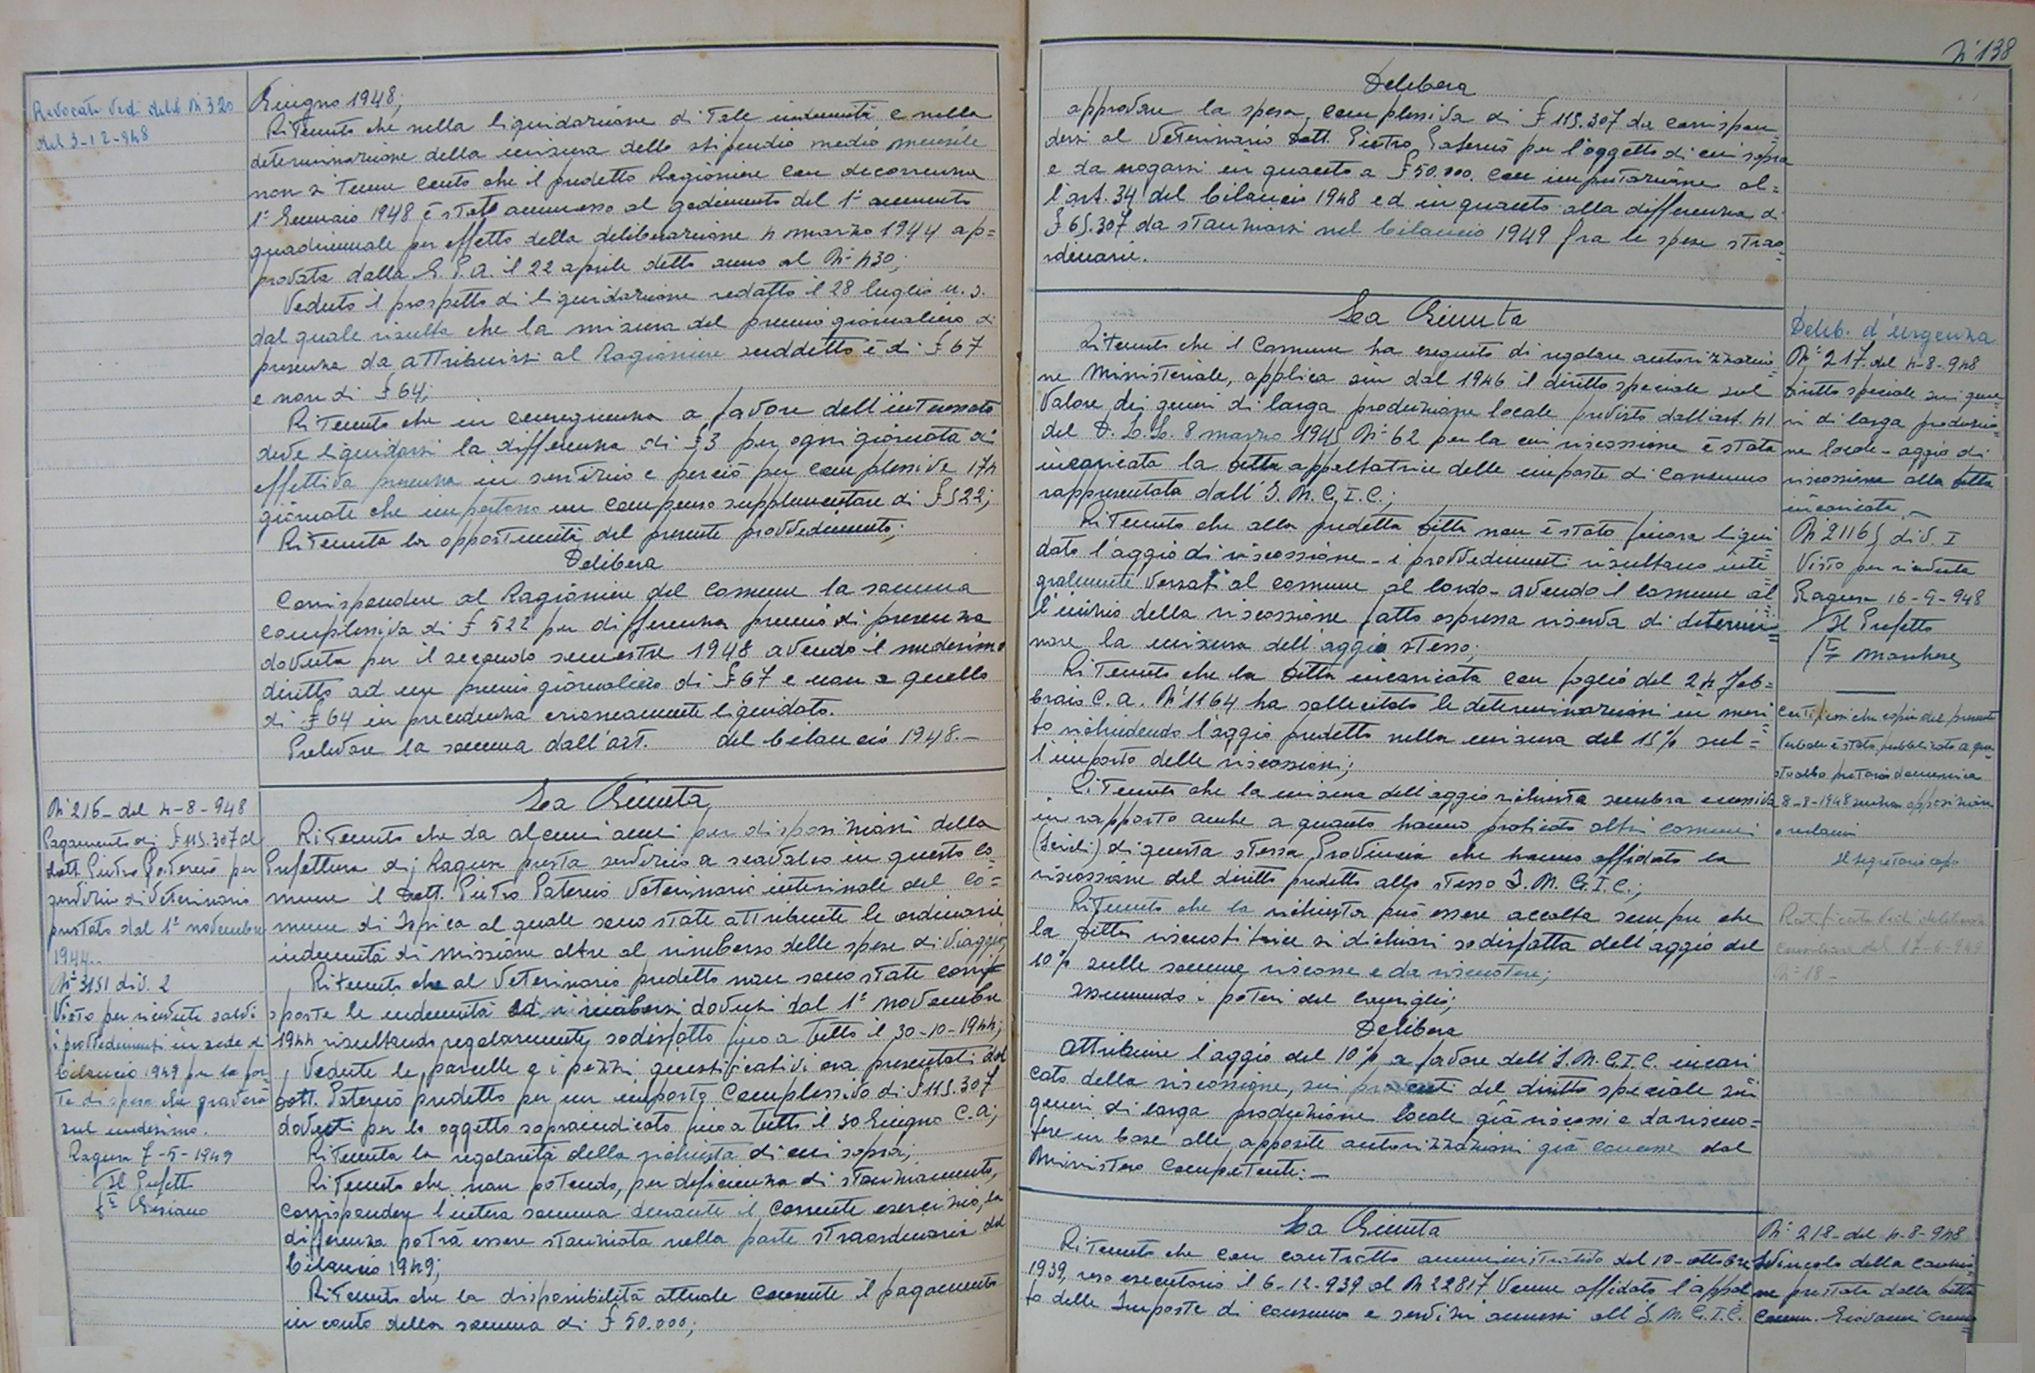 Revocata vedi delib. N° 320
del 3-12-948
Giugno 1948;
Ritenuto che nella liquidazione di tale indennità e nella
determinazione della misura dello stipendio medio mensile
non si tenne conto che il predetto Ragioniere con decorrenza
1° Gennaio 1948 è stato ammesso al godimento del 1° aumento
quadriennale per effetto della deliberazione 4 marzo 1944 ap=
provata dalla G.P.A. il 22 aprile detto anno al N° 430;
Veduto il prospetto di liquidazione redatto il 28 luglio u.s.
dal quale risulta che la misura del premio giornaliero di
presenza da attribuirsi al Ragioniere suddetto è di £ 67
e non di £ 64;
Ritenuto che in conseguenza a favore dell'interessato
deve liquidarsi la differenza di £ 3 per ogni giornata di
effettiva presenza in servizio e perciò per complessive 174
giornate che importano un compenso supplementare di £ 522;
Ritenuta la opportunità del presente provvedimento;
Delibera
Corrispondere al Ragioniere del Comune la somma
complessiva di £ 522 per differenza premio di presenza
dovuta per il secondo semestre 1948 avendo il medesimo
diritto ad un premio giornaliero di £ 67 e non a quello
di £ 64 in precedenza erroneamente liquidato.
Prelevare la somma dall'art. del bilancio 1948.-
N° 216 - del 4-8-948
Pagamento di £ 115.307 al
dott. Pietro Paternò per
servizio di Veterinario
prestato dal 1° novembre
1944.
N° 3151 div. 2
Visto per ricevuta salvi
i provvedimenti in sede di
bilancio 1949 per la par-
te di spesa che graverà
sul medesimo.
Ragusa 7-5-1949
Il Prefetto
La Giunta
Ritenuto che da alcuni anni per disposizioni della
Prefettura di Ragusa presta servizio a scavalco in questo Co=
mune il Dott. Pietro Paternò Veterinario interinale del Co=
mune di Ispica al quale sono state attribuite le ordinarie
indennità di missione oltre al rimborso delle spese di viaggio;
Ritenuto che al Veterinario predetto non sono state corri=
sposte le indennità ed i rimborsi dovuti dal 1° novembre
1944 risultando regolarmente sodisfatto fino a tutto il 30-10-1944;
Vedute le parcelle e i pezzi giustificativi ora presentati dal
Dott. Paternò predetto per un importo complessivo di £ 115.307
dovuti per lo oggetto sopraindicato fino a tutto il 30 Giugno c.a;
Ritenuta la regolarità della richiesta di cui sopra;
Ritenuto che non potendo, per deficienza di stanziamento,
corrispondere l'intera somma durante il corrente esercizio, la
differenza potrà essere stanziata nella parte straordinaria del
bilancio 1949;
Ritenuto che la disponibilità attuale consente il pagamento
in conto della somma di £ 50.000;
N° 138
Delibera
approvare la spesa complessiva di £ 115.307 da corrispon=
dersi al Veterinario Dott. Pietro Paternò per l'oggetto di cui sopra
e da erogarsi in quanto a £ 50.000. con imputazione al=
l'art. 34 del bilancio 1948 ed in quanto alla differenza di
£ 65.307 da stanziarsi nel bilancio 1949 fra le spese strao=
rdinarie.
La Giunta
Ritenuto che il Comune ha eseguito di regolare autorizzazio=
ne Ministeriale, applica sin dal 1946 il diritto speciale sul
valore dei generi di larga produzione locale previsto dall'art. 41
del D.L.L. 8 marzo 1945 N° 62 per la cui riscossione è stata
incaricata la Ditta appaltatrice delle imposte di consumo
rappresentata dall'I.M.C.I.C.;
Ritenuto che alla predetta Ditta non è stato finora liqui=
dato l'aggio di riscossione - i provvedimenti risultano inte=
gralmente versati al comune al lordo - avendo il comune al=
l'inizio della riscossione fatto espressa riserva di determi=
nare la misura dell'aggio stesso.
Ritenuto che la Ditta incaricata con foglio del 24 Feb=
braio c.a. N° 1164 ha sollecitato le determinazioni in meri=
to richiedendo l'aggio predetto nella misura del 15% sul=
l'importo delle riscossioni;
Ritenuto che la misura dell'aggio richiesta sembra eccessiva
in rapporto anche a quanto hanno praticato altri comuni
(Scicli) di questa stessa Provincia che hanno affidato la
riscossione del diritto predetto allo stesso I.M.C.I.C.;
Ritenuto che la richiesta può essere accolta sempre che
la Ditta riscuotitrice si dichiari sodisfatta dell'aggio del
10% sulle somme riscosse e da riscuotere;
Assumendo i poteri del Consiglio;
Delibera
Attribuire l'aggio del 10% a favore dell'I.M.C.I.C. incari
cato della riscossione, sui proventi del diritto speciale sui
generi di larga produzione locale già riscossi e da riscuo=
tere in base alle apposite autorizzazioni già concesse dal
Ministero Competente:-
Delib. d'urgenza
N° 217 - del 4-8-948
Diritto speciale sui gene=
ri di larga produzio=
ne locale - aggio di
riscossione alla Ditta
incaricata.-
N 21165 div. I
Visto per ricevuta
Ragusa 16-9-948
Il Prefetto
Certifico che copia del presente
verbale è stata pubblicata a que
sto albo pretorio domenica
8-8-1948 senza opposizioni
o reclami
Il Segretario capo
Ratificata vedi deliberaz.
consiliare del 17-6-949
N° 18 -
La Giunta
Ritenuto che con contratto amministrativo del 10-ottobre
1939, reso esecutorio il 6-12-939 al N 22817 venne affidato l'appal
to delle Imposte di consumo e servizi annessi all'I.M.C.I.C.
N° 218 - del 4-8-948
Svincolo della cauzio
ne prestata dalla Ditta
Comm. Giovanni